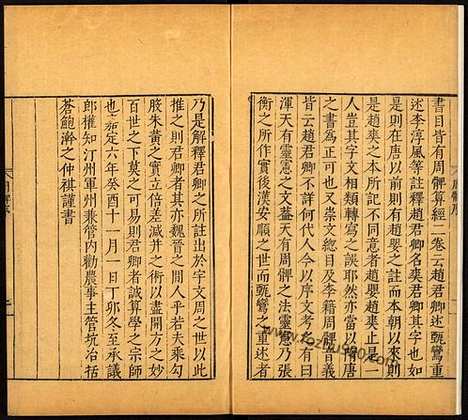 書目皆有周髀算經二卷云趙君卿述甄鸞重
述李淳風等註釋趙君卿名爽君卿其字也如
是則在唐以前則有趙嬰之註而本朝以來則
是趙爽之本所記不同意者趙嬰趙爽止是一
人豈其字文相類轉寫之誤耶然亦當以隋唐
之書為正可也又崇文總目及李籍周髀音義
皆云趙君卿不詳何代人今以序文考之有曰
渾天有靈憲之文蓋天有周髀之法靈憲乃張
衡之所作實後漢安順之世而甄鸞之重述者
乃是解釋君卿之所註出於宇文周之世以此
推之則君卿者其亦魏晉之間人乎若夫乘勾
股朱黃之實立倍差減并之術以盡開方之妙
百世之下莫之可易則君卿者誠算學之宗師
也嘉定六年癸酉十一月一日丁卯冬至承議
郎權知汀州軍州兼管內勸農事主管坑冶括
蒼鮑澣之仲祺謹書